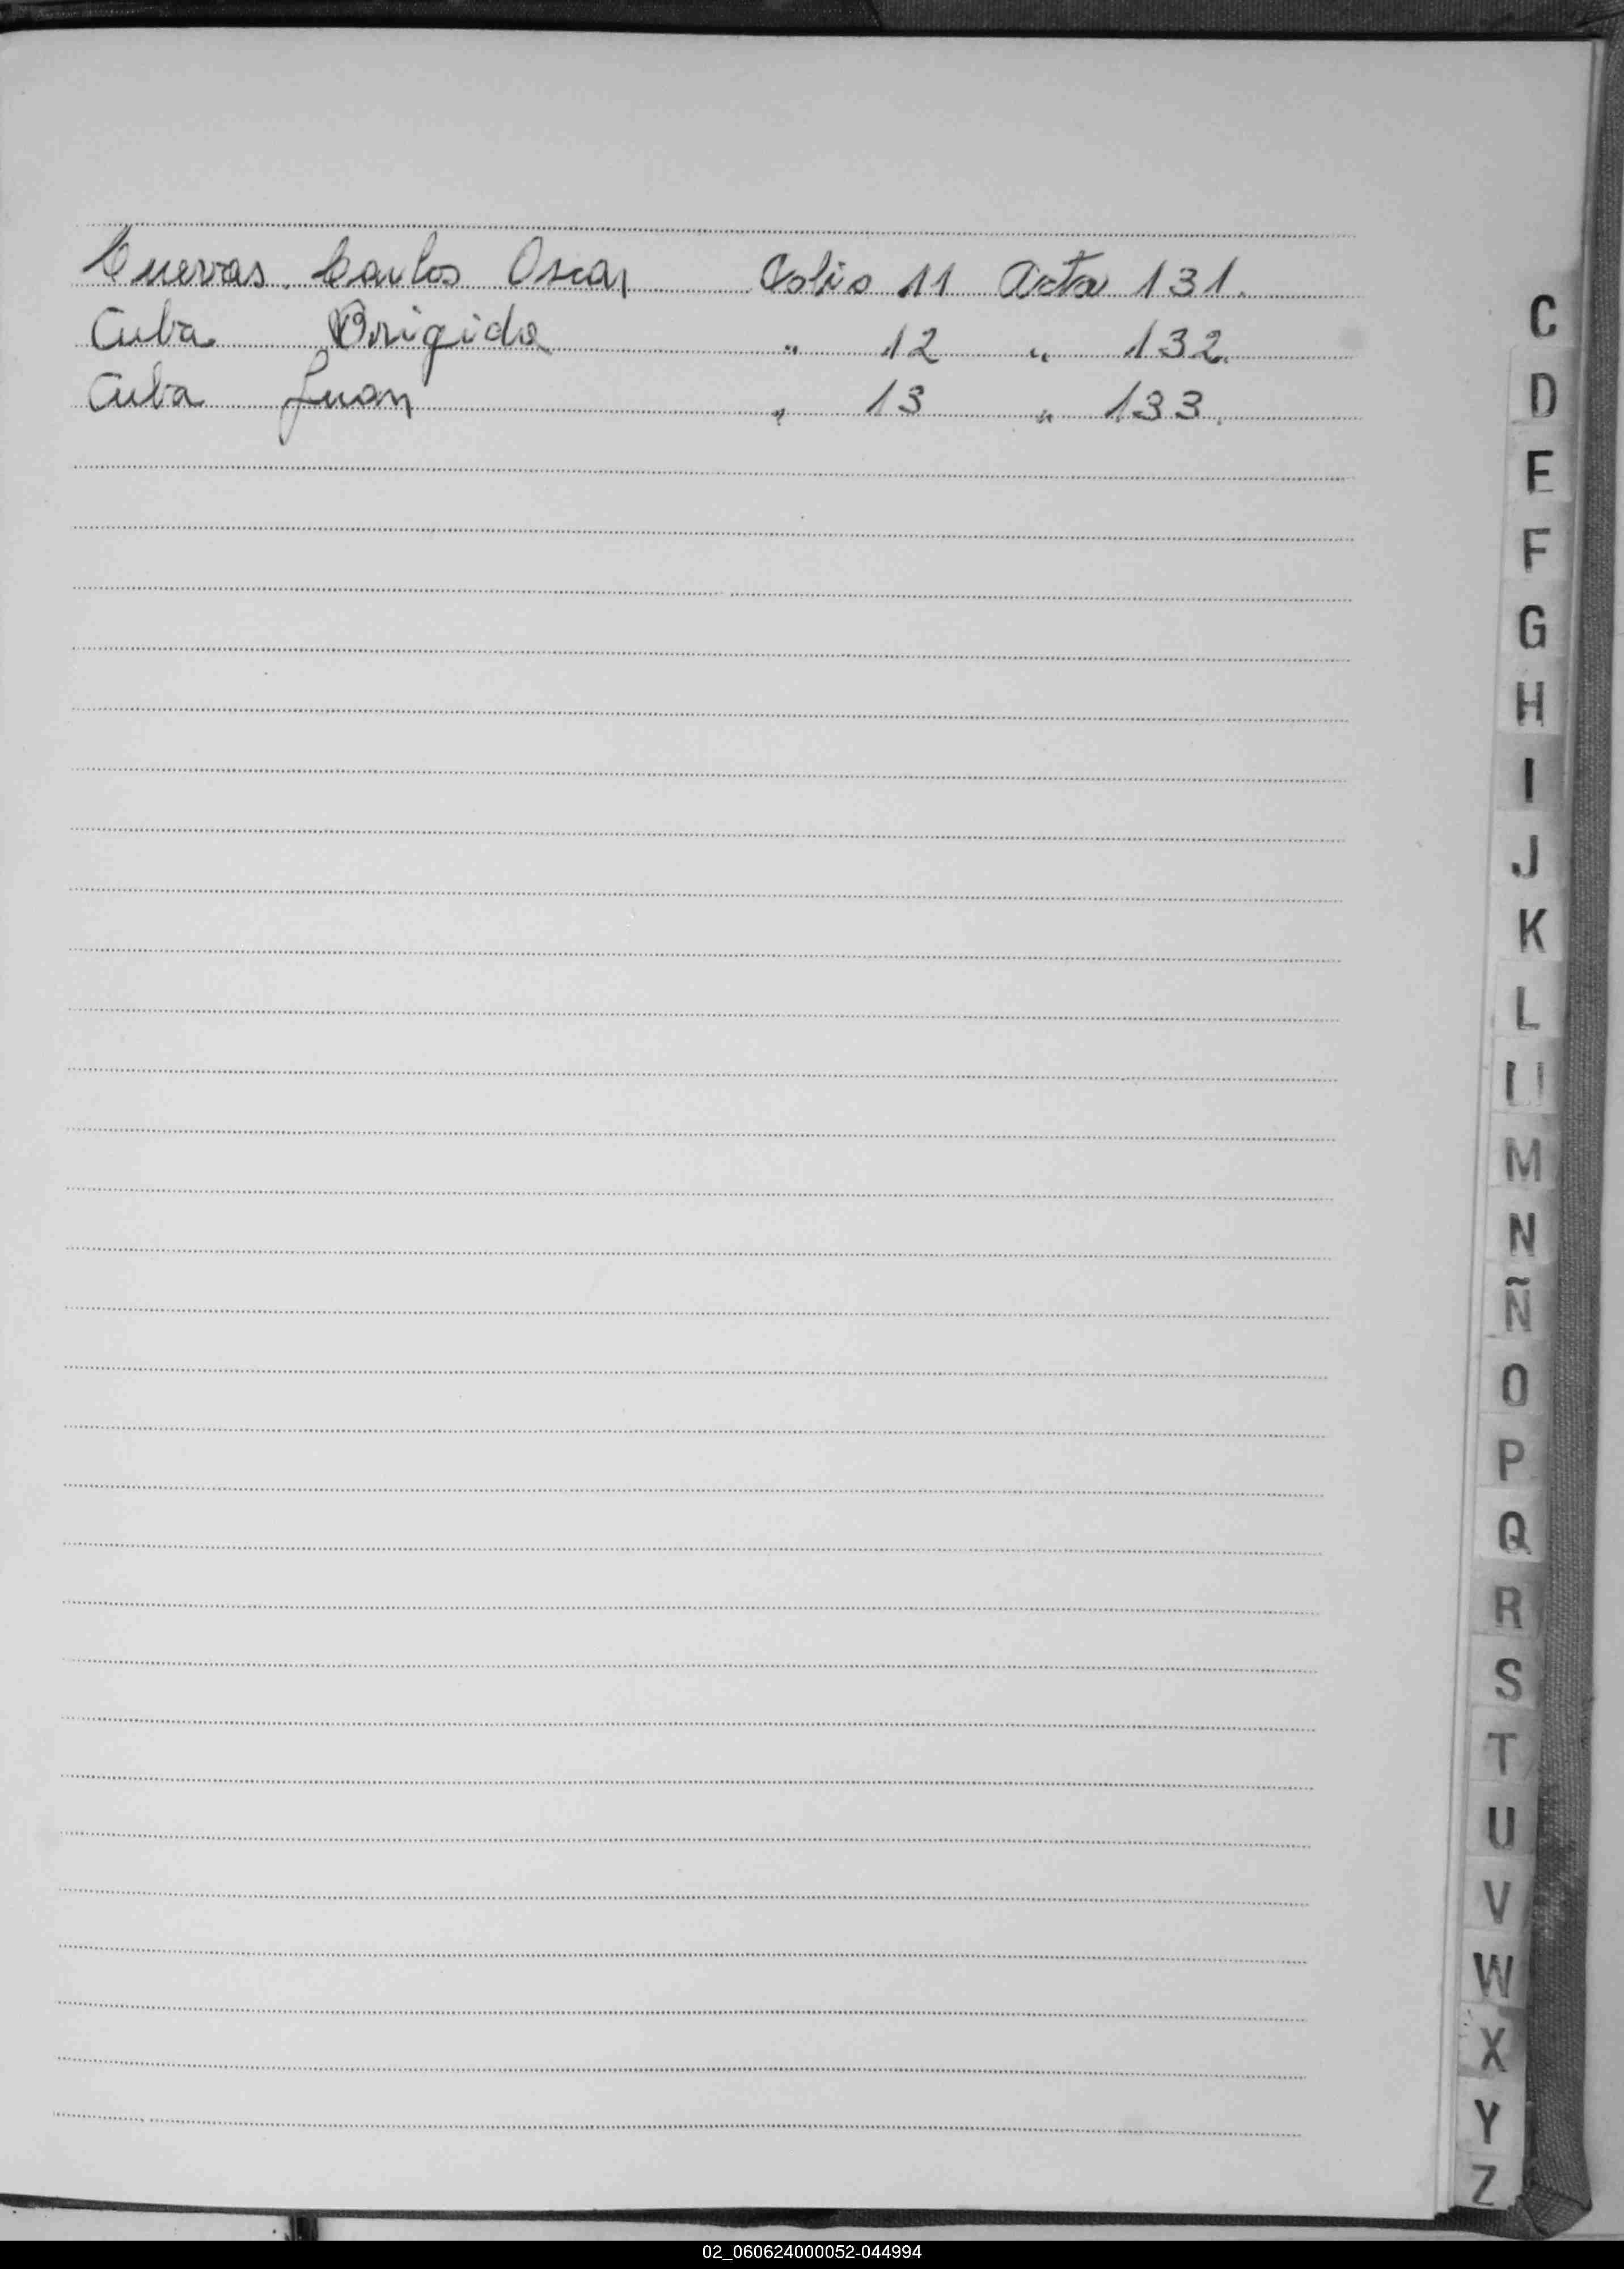 Cuevas. Carlos Oscar Folio 11 Acta 131.
Cuba Brigida " 12 " 132.
Cuba Juan " 13 " 133.
C
D
E
F
G
H
I
J
K
L
Ll
M
N
Ñ
O
P
Q
R
S
T
U
V
W
X
Y
Z
02_060624000052-044994